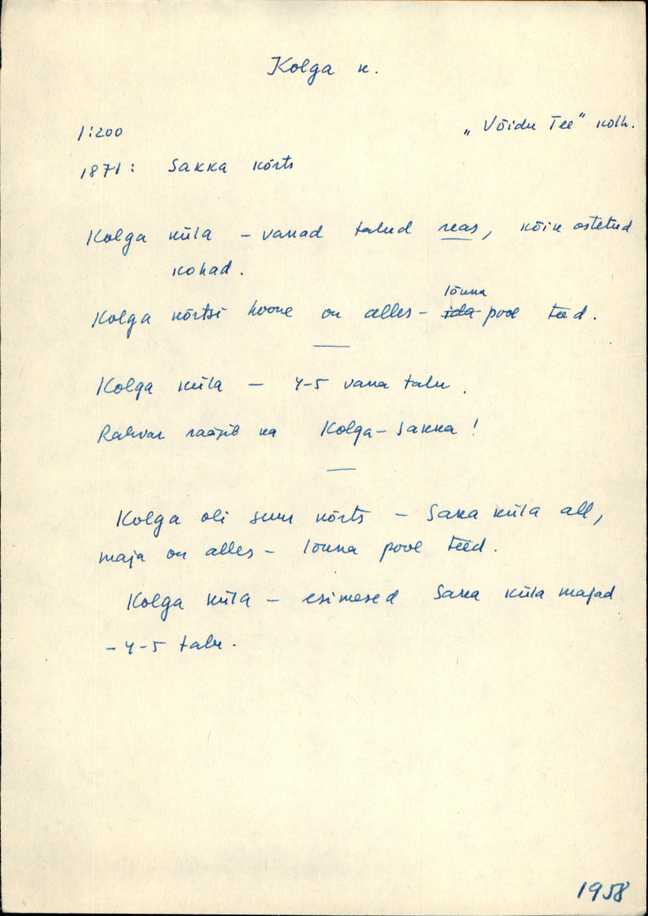 Kolga k.
1:200 „Võidu Tee" kolh.
1871: Sakka kõrts
Kolga küla – vanad talud reas, kõik ostetud
kohad.
lõuna
Kolga kõrtsi hoone on alles – ida pool teed.
Kolga küla – 4-5 vana talu.
Rahvas räägib ka Kolga-Sakka!
Kolga oli suur kõrts – Saka küla all,
maja on alles – lõuna pool teed.
Kolga küla – esimesed Saka küla majad
– 4-5 talu.
1958